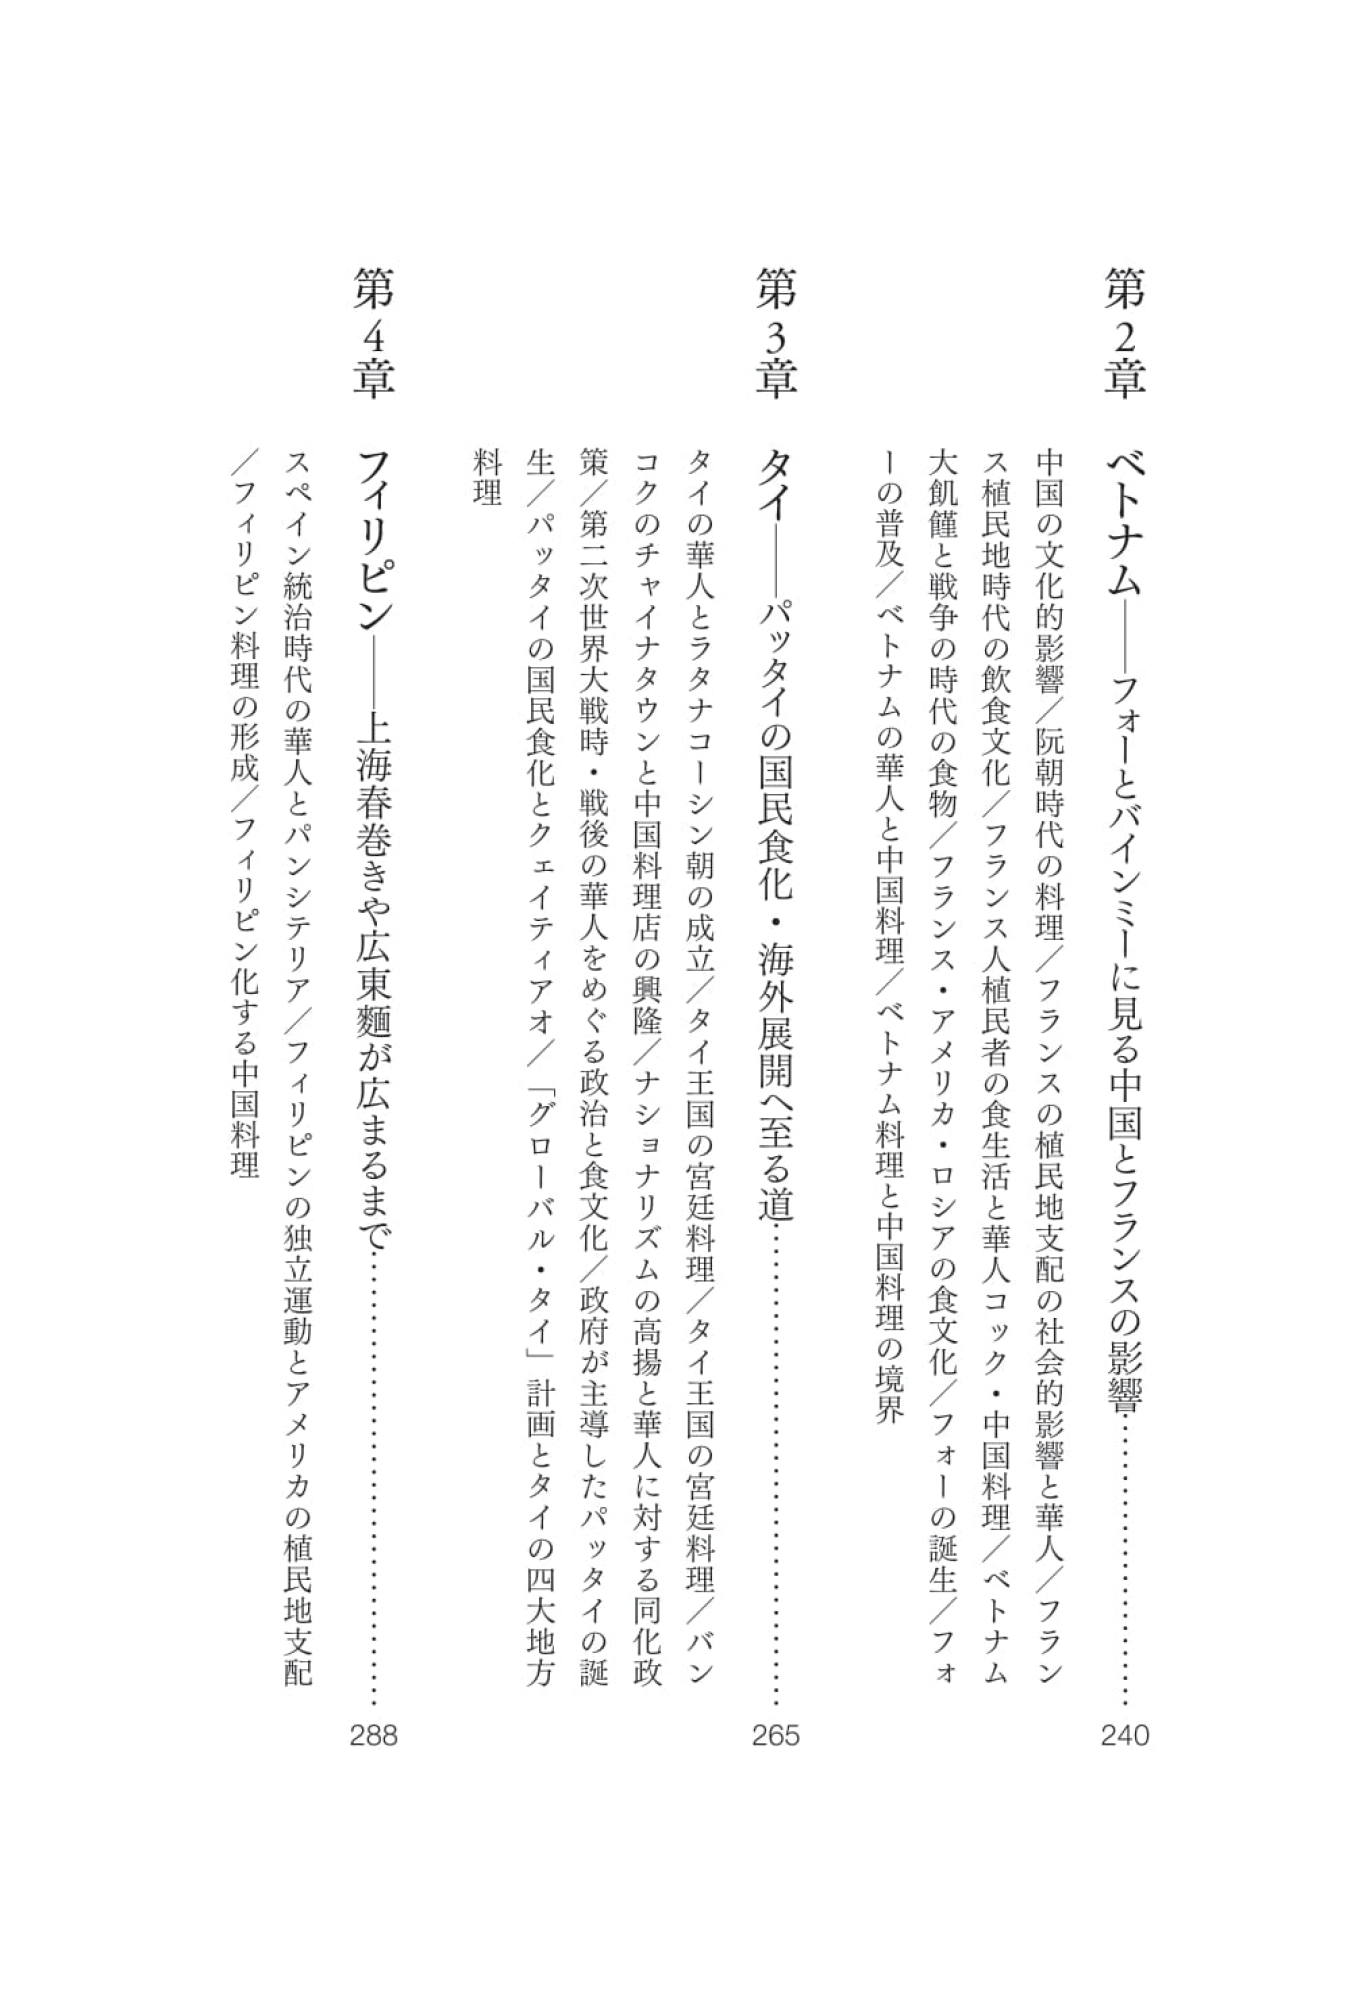 第2章 ベトナム——フォーとバインミーに見る中国とフランスの影響……………………240
中国の文化的影響／阮朝時代の料理／フランスの植民地支配の社会的影響と華人／フラン
ス植民地時代の飲食文化／フランス人植民者の食生活と華人コック・中国料理／ベトナム
大飢饉と戦争の時代の食物／フランス・アメリカ・ロシアの食文化／フォーの誕生／フォ
ーの普及／ベトナムの華人と中国料理／ベトナム料理と中国料理の境界
第3章 タイ——パッタイの国民食化・海外展開へ至る道……………………………………265
タイの華人とラタナコーシン朝の成立／タイ王国の宮廷料理／タイ王国の宮廷料理／バン
コクのチャイナタウンと中国料理店の興隆／ナショナリズムの高揚と華人に対する同化政
策／第二次世界大戦時・戦後の華人をめぐる政治と食文化／政府が主導したパッタイの誕
生／パッタイの国民食化とクェイティアオ／「グローバル・タイ」計画とタイの四大地方
料理
第4章 フィリピン——上海春巻きや広東麵が広まるまで……………………………………288
スペイン統治時代の華人とパンシテリア／フィリピンの独立運動とアメリカの植民地支配
／フィリピン料理の形成／フィリピン化する中国料理